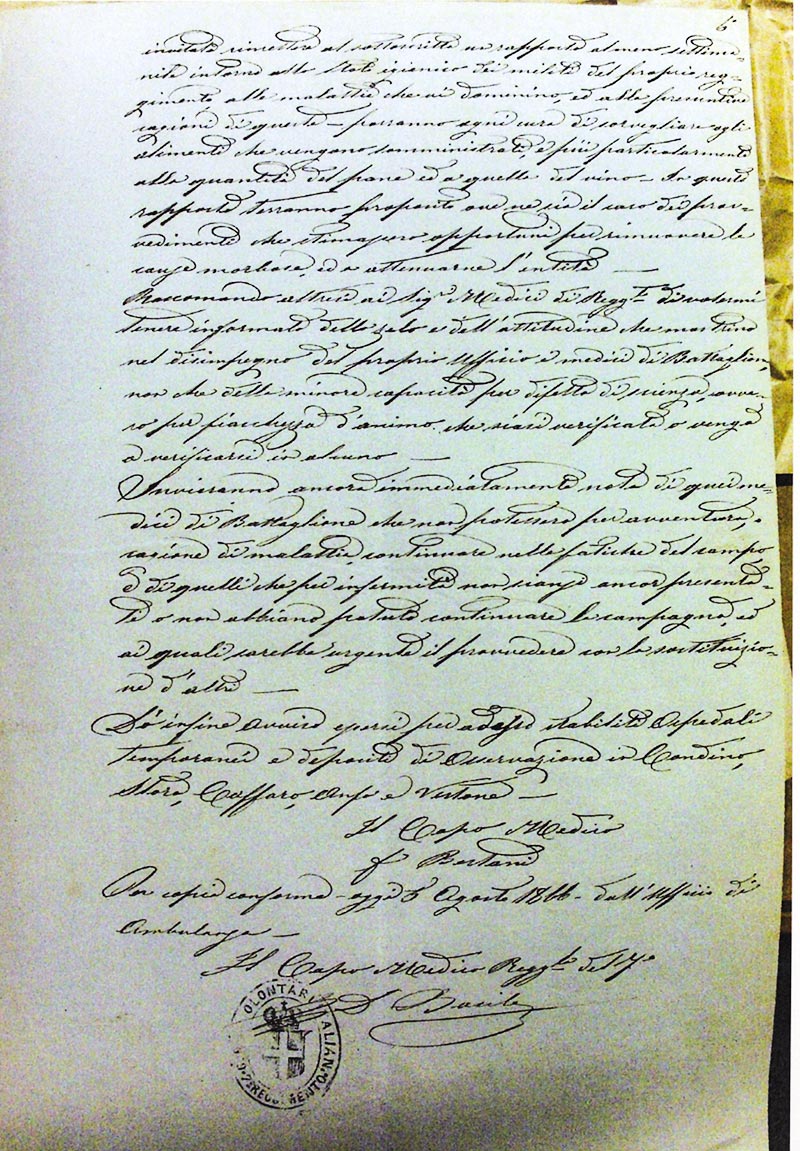 5
invitati rimettere al sottoscritto un rapporto almeno settima-
nile intorno allo stato igienico dei militi del proprio reg-
gimento alle malattie che vi dominino, ed alle presuntive
cagioni di queste — porranno ogni cura di sorvegliare agli
alimenti che vengono somministrati, e più particolarmente
alla quantità del pane ed a quella del vino — In questo
rapporto terranno proposito ove ne sia il caso dei prov-
vedimenti che stimassero opportuni per rimuovere le
cause morbose, ed a attenuarne l'entità —
Raccomando altresì ai Sig.i Medici di Regg.to di volermi
tenere informato dello zelo e dell'attitudine che mostrino
nel disimpegno del proprio Ufficio i medici di Battaglion,
non che della minore capacità per difetto di scienza, ovve-
ro per fiacchezza d'animo, che siasi verificata o venga
a verificarsi in alcuno —
Invieranno ancora immediatamente nota di quei me-
dici di Battaglione che non potessero per avventura, a
cagione di malattia, continuare nelle fatiche del campo
e di quelli che per infermità non siansi ancor presenta-
ti o non abbiano potuto continuare la campagna, ed
ai quali sarebbe urgente il provvedere con la sostituzio-
ne d'altri —
Do infine avviso esservi per adesso stabiliti Ospedali
temporanei e depositi di Osservazione in Condino,
Storo, Caffaro, Anfo e Vestone —
Il Capo Medico
f Bertani
Per copia conforme — oggi 5 Agosto 1866 — dall'Ufficio di
Ambulanza —
Il Capo Medico Regg.le del 7°
D
OLONTARI ALIANI
7° REGGIMENTO